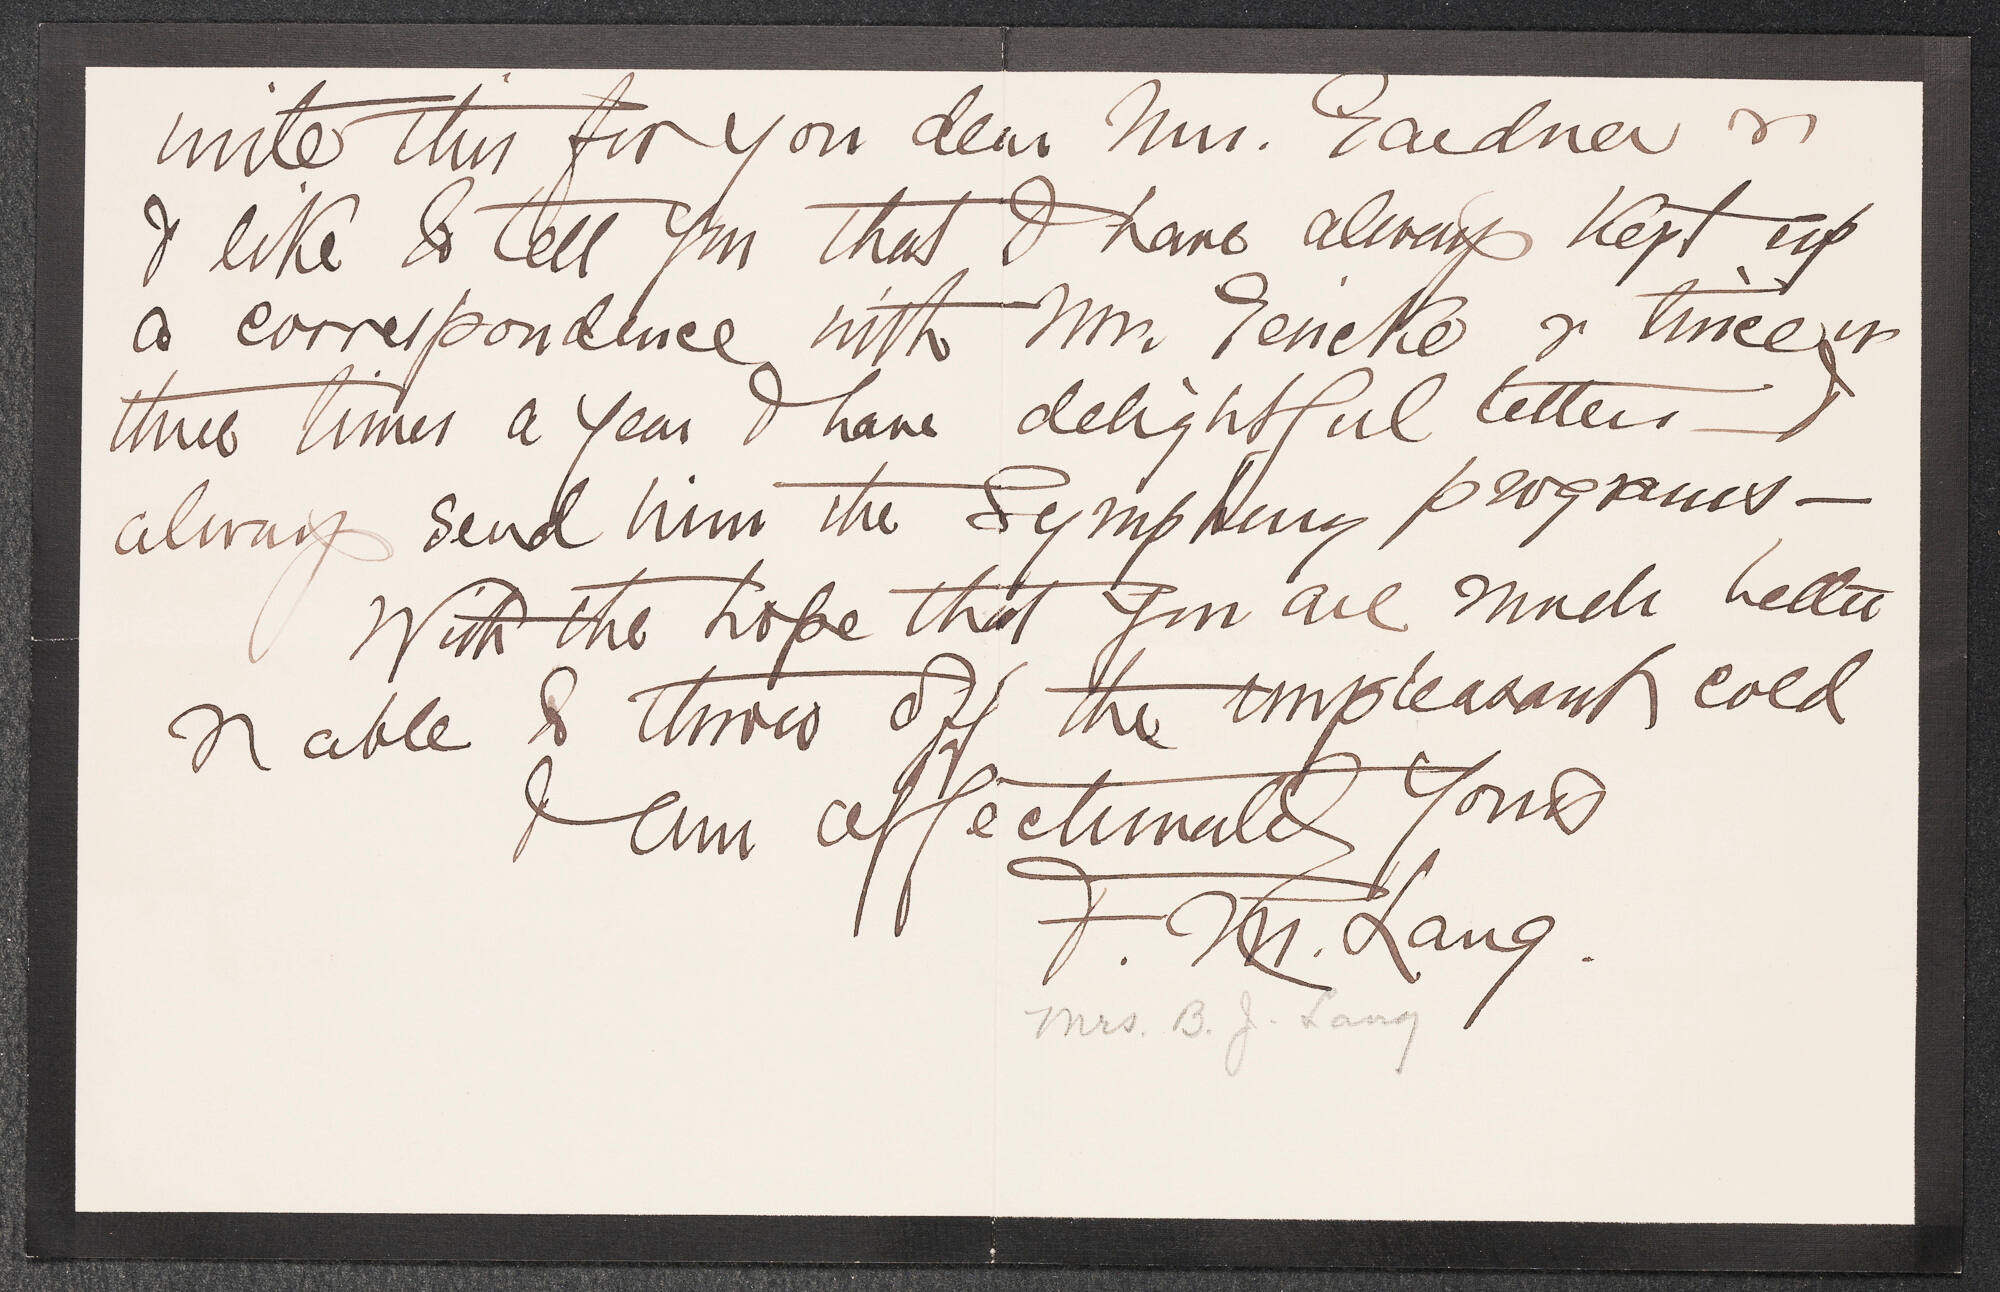 write this for you dear Mrs. Gardner &
I like to tell you that I have always kept up
a correspondence with Mr. Gericke & twice or
three times a year I have delightful letters — I
always send him the Symphony programs —
With the hope that you are much better
& able to throw off the unpleasant cold
I am affectionately yours
F. M. Lang.
Mrs. B. J. Lang